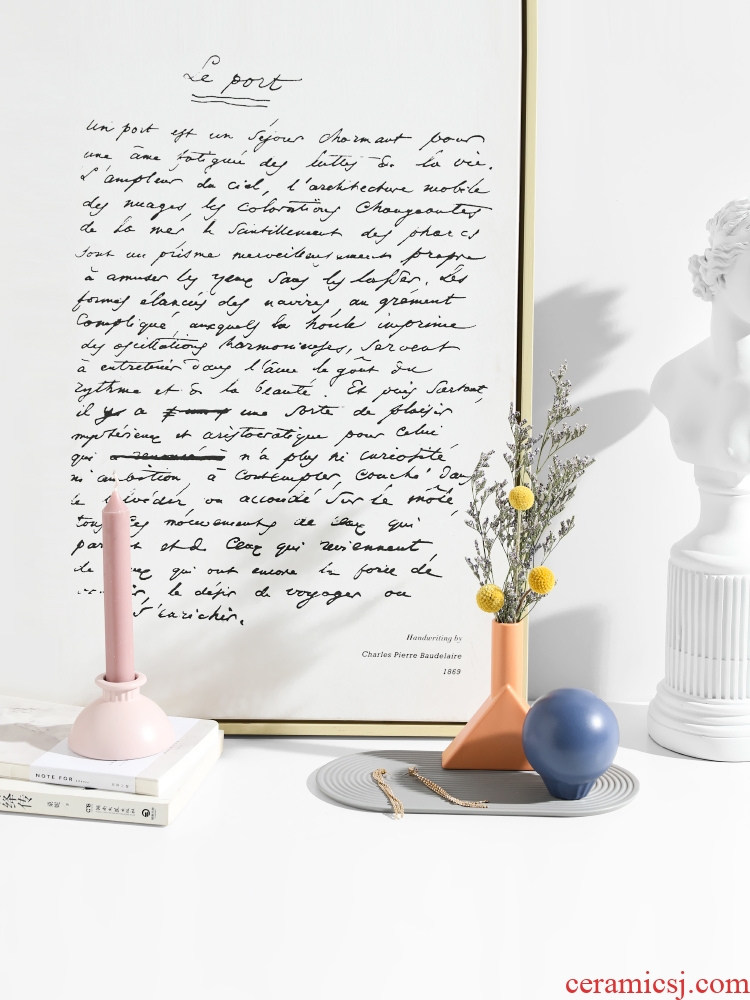 Le port
Un port est un séjour charmant pour
une âme fatiguée des luttes de la vie.
L'ampleur du ciel, l'architecture mobile
des nuages, les colorations changeantes
de la mer, le scintillement des phares
sont un prisme merveilleusement propre
à amuser les yeux sans les lasser. Les
formes élancées des navires, au gréement
compliqué, auxquels la houle imprime
des oscillations harmonieuses, servent
à entretenir dans l'âme le goût du
rythme et de la beauté. Et puis, surtout,
il y a une sorte de plaisir
mystérieux et aristocratique pour celui
qui n'a plus ni curiosité
ni ambition, à contempler, couché dans
le belvédère ou accoudé sur le môle,
tous ces mouvements de ceux qui
partent et de ceux qui reviennent,
de ceux qui ont encore la force de
le désir de voyager ou
s'enrichir.
Handwriting by
Charles Pierre Baudelaire
1869
NOTE FOR
绎传
ceramicsj.com